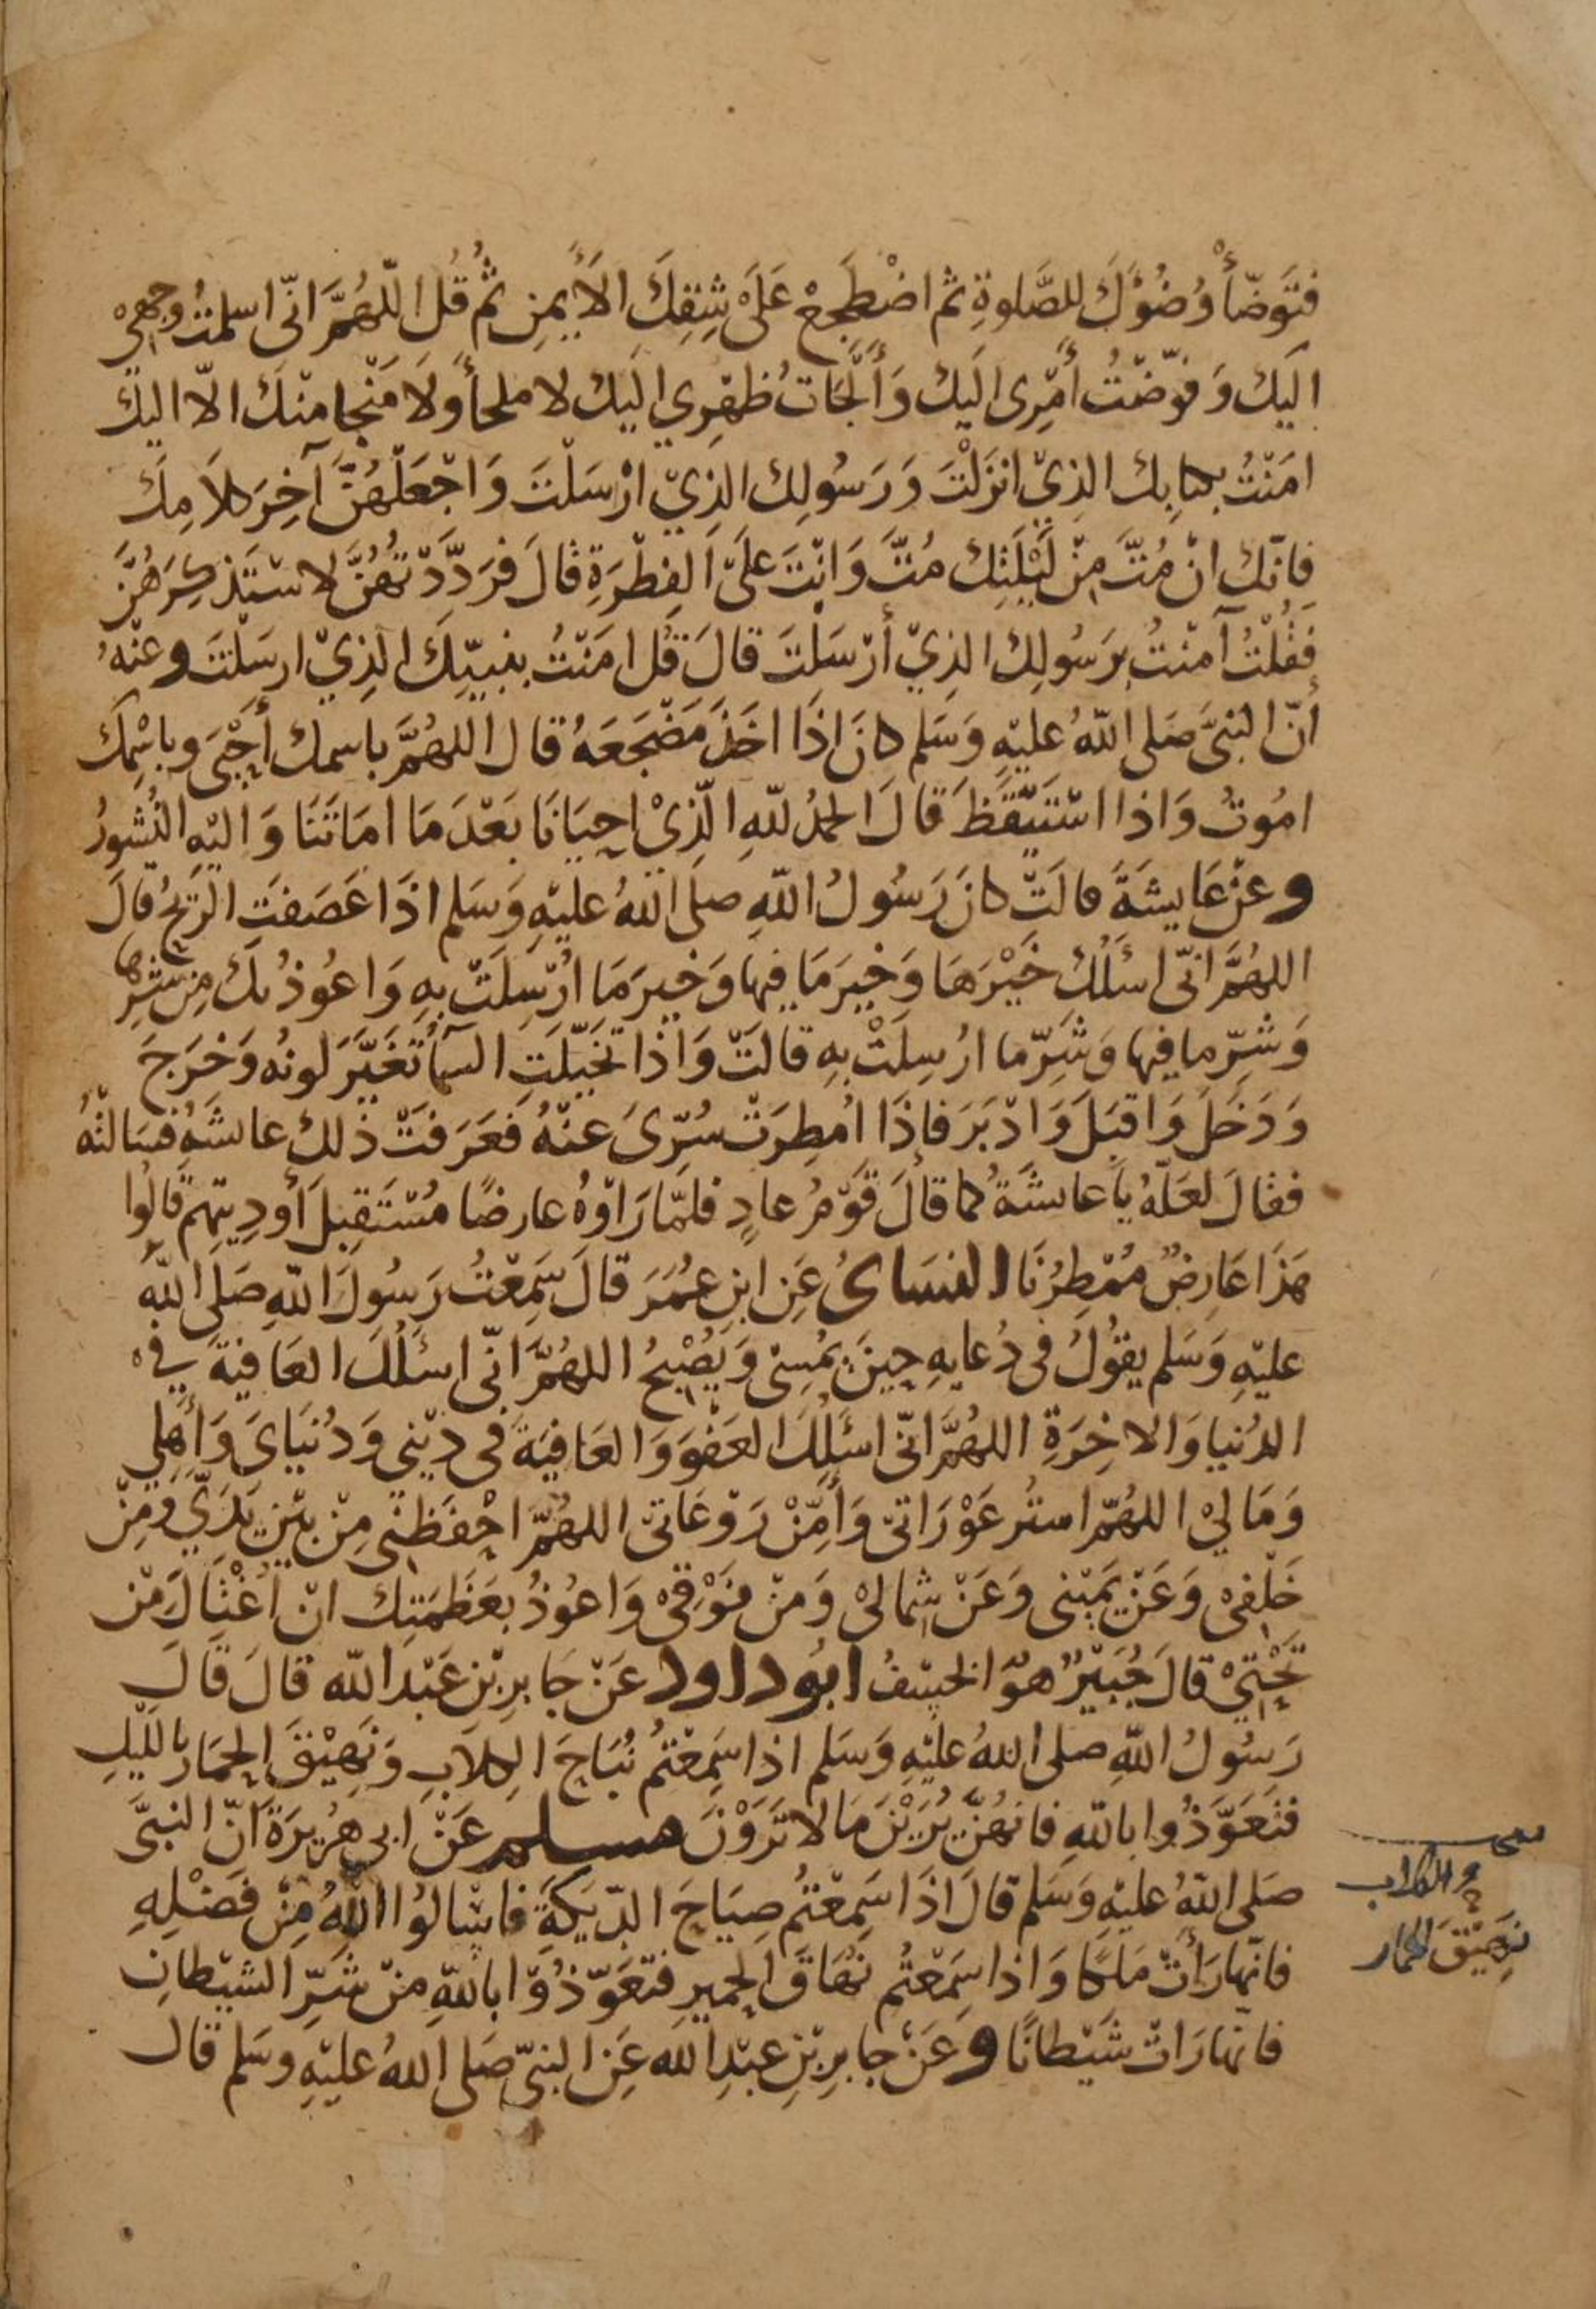 فَتَوَضّأْ وُضُؤَكَ للصَّلوةِ ثم اضْطَجِعْ عَلَى شِقِكَ الأيمنِ ثُم قُل اللّهُمَّ انّى اسلمتُ وجهِىْ
اليَكَ وَفوّضْتُ أمْرِى اليَكَ وَأَلْجَاتُ ظهْرِي اليَك لا ملجأ وَلَا مَنْجا منْكَ الّا اليَكَ
امَنْتُ بكتابِك الذِىْ انْزَلْتَ وَرَسُولِكَ الذِيْ ارْسَلْتَ وَاجْعَلْهُنَّ آخِرَ كلاَمِكَ
فانّك انْ مُتَّ مِنْ لَيْلَتِكَ مُتَّ وَانْتَ عَلىَ الفِطْرَةِ قالَ فرَدَّدْتهُنَّ لاسْتَذكِرَهُنَّ
فَقُلْتُ آمنْتُ بِرَسُولِكَ الذِيْ أرْسَلْتَ قالَ قُل امَنْتُ بنبيّكَ الذِيْ ارسَلْتَ وعنْهُ
أنّ النبىَّ صَلى اللّهُ عليْهِ وَسَلم كانَ اذَا اخَذَ مَضْجَعَهُ قال اللهُمَّ باسمك أحْيَى وباسْمِكَ
امُوتُ وَاذا اسْتَيْقَظَ قالَ الحمدُ للّهِ الّذِىْ احيَانَا بَعْدَمَا امَاتَنَا وَاليْهِ النُشورُ
وعنْ عَايشَةَ قالَتْ كانَ رَسُولُ اللّهِ صلى اللهُ عليْهِ وَسَلم اذَا عَصَفتَ الرّيحُ قالَ
اللهُمَّ انّى اسئَلُكَ خَيْرَهَا وَخيرَ مَا فيها وَخيرَ مَا ارْسِلَتْ بهِ وَاعُوذُ بكَ مِن شرِّها
وَشرِّ ما فيها وَشرِّ ما ارْسِلَتْ بهِ قالتْ وَاذا تخيّلَتِ السمآُ تَغَيّرَ لونُه وَخرَجَ
وَدَخَلَ وَاقبَلَ وَادْبَرَ فاِذَا امْطِرَتْ سُرِّىَ عَنْهُ فَعَرَفتْ ذلك عائشَةُ فسَالتْهُ
فقالَ لعَلّهُ يا عائشَةُ كما قالَ قَوْمُ عادٍ فلمّا رَاوْهُ عارضًا مُسْتَقبِلَ أودِيتِهم قالُوا
هَذَا عَارِضٌ مُمْطِرُنَا النسَائىُ عَنِ ابنِ عُمَرَ قالَ سَمِعْتُ رَسُولَ اللّهِ صَلى اللهُ
عليْهِ وَسَلم يقُولُ فى دُعايهِ حِينَ يمُسِىْ وَيُصْبِحُ اللهُمَّ انّى اسئَلُكَ العَافيَةَ فِى
الدُنيا وَالاخِرَةِ اللهُمَّ انّى اسئَلُكَ العَفوَ وَالعَافِيَةَ فى دِيْنِي وَدُنيَاىَ وَأهْلِي
وَمَالِيْ اللهُمّ استُر عَوْرَاتىْ وَأمِّنْ رَوْعَاتىْ اللهُمَّ احْفَظنِى مِنْ بَيْنِ يَدَيَّ وَمِنْ
خَلْفِىْ وَعَنْ يَمِيْنى وَعَنْ شمالىْ وَمنْ فوْقِىْ وَاعُوذُ بعَظَمَتِكَ انْ اُغْتَالَ مِنْ
تَحْتِىْ قالَ جُبَيْرٌ هوَ الخَسْفُ ابُو داود عَنْ جَابِرِ بْنِ عَبْدِ اللّه قالَ قَالَ
رَسُولُ اللّهِ صلى اللهُ عليْهِ وَسَلم اذا سَمِعْتمُ نُبَاحَ الكِلابِ وَنَهِيْقَ الحِمَارِ باللّيْلِ
فتَعَوَّذُوا باللّهِ فانهُنَّ يُرَيْنَ مَا لا تَرَوْنَ مسلم عَنْ ابى هُرَيرَةَ انّ النبىَّ
صَلى اللّهُ عليْهِ وَسَلم قالَ اذَا سَمِعْتُم صِيَاحَ الدّيَكَةَ فاسْالوُا اللّهَ مِنْ فَضْلِهِ
فانّها رَأتْ مَلَكًا وَاذا سَمِعْتُم نُهَاقَ الحمِيرِ فتَعَوّذُوْا باللّهِ منْ شرِّ الشيْطانِ
فانّها رَاتْ شَيْطانًا وعَنْ جابِرِ بْنِ عبْدِ الله عَنِ النبىّ صَلى اللهُ عليْهِ وسَلم قال
الكلاب
نهِيْقَ الحمار